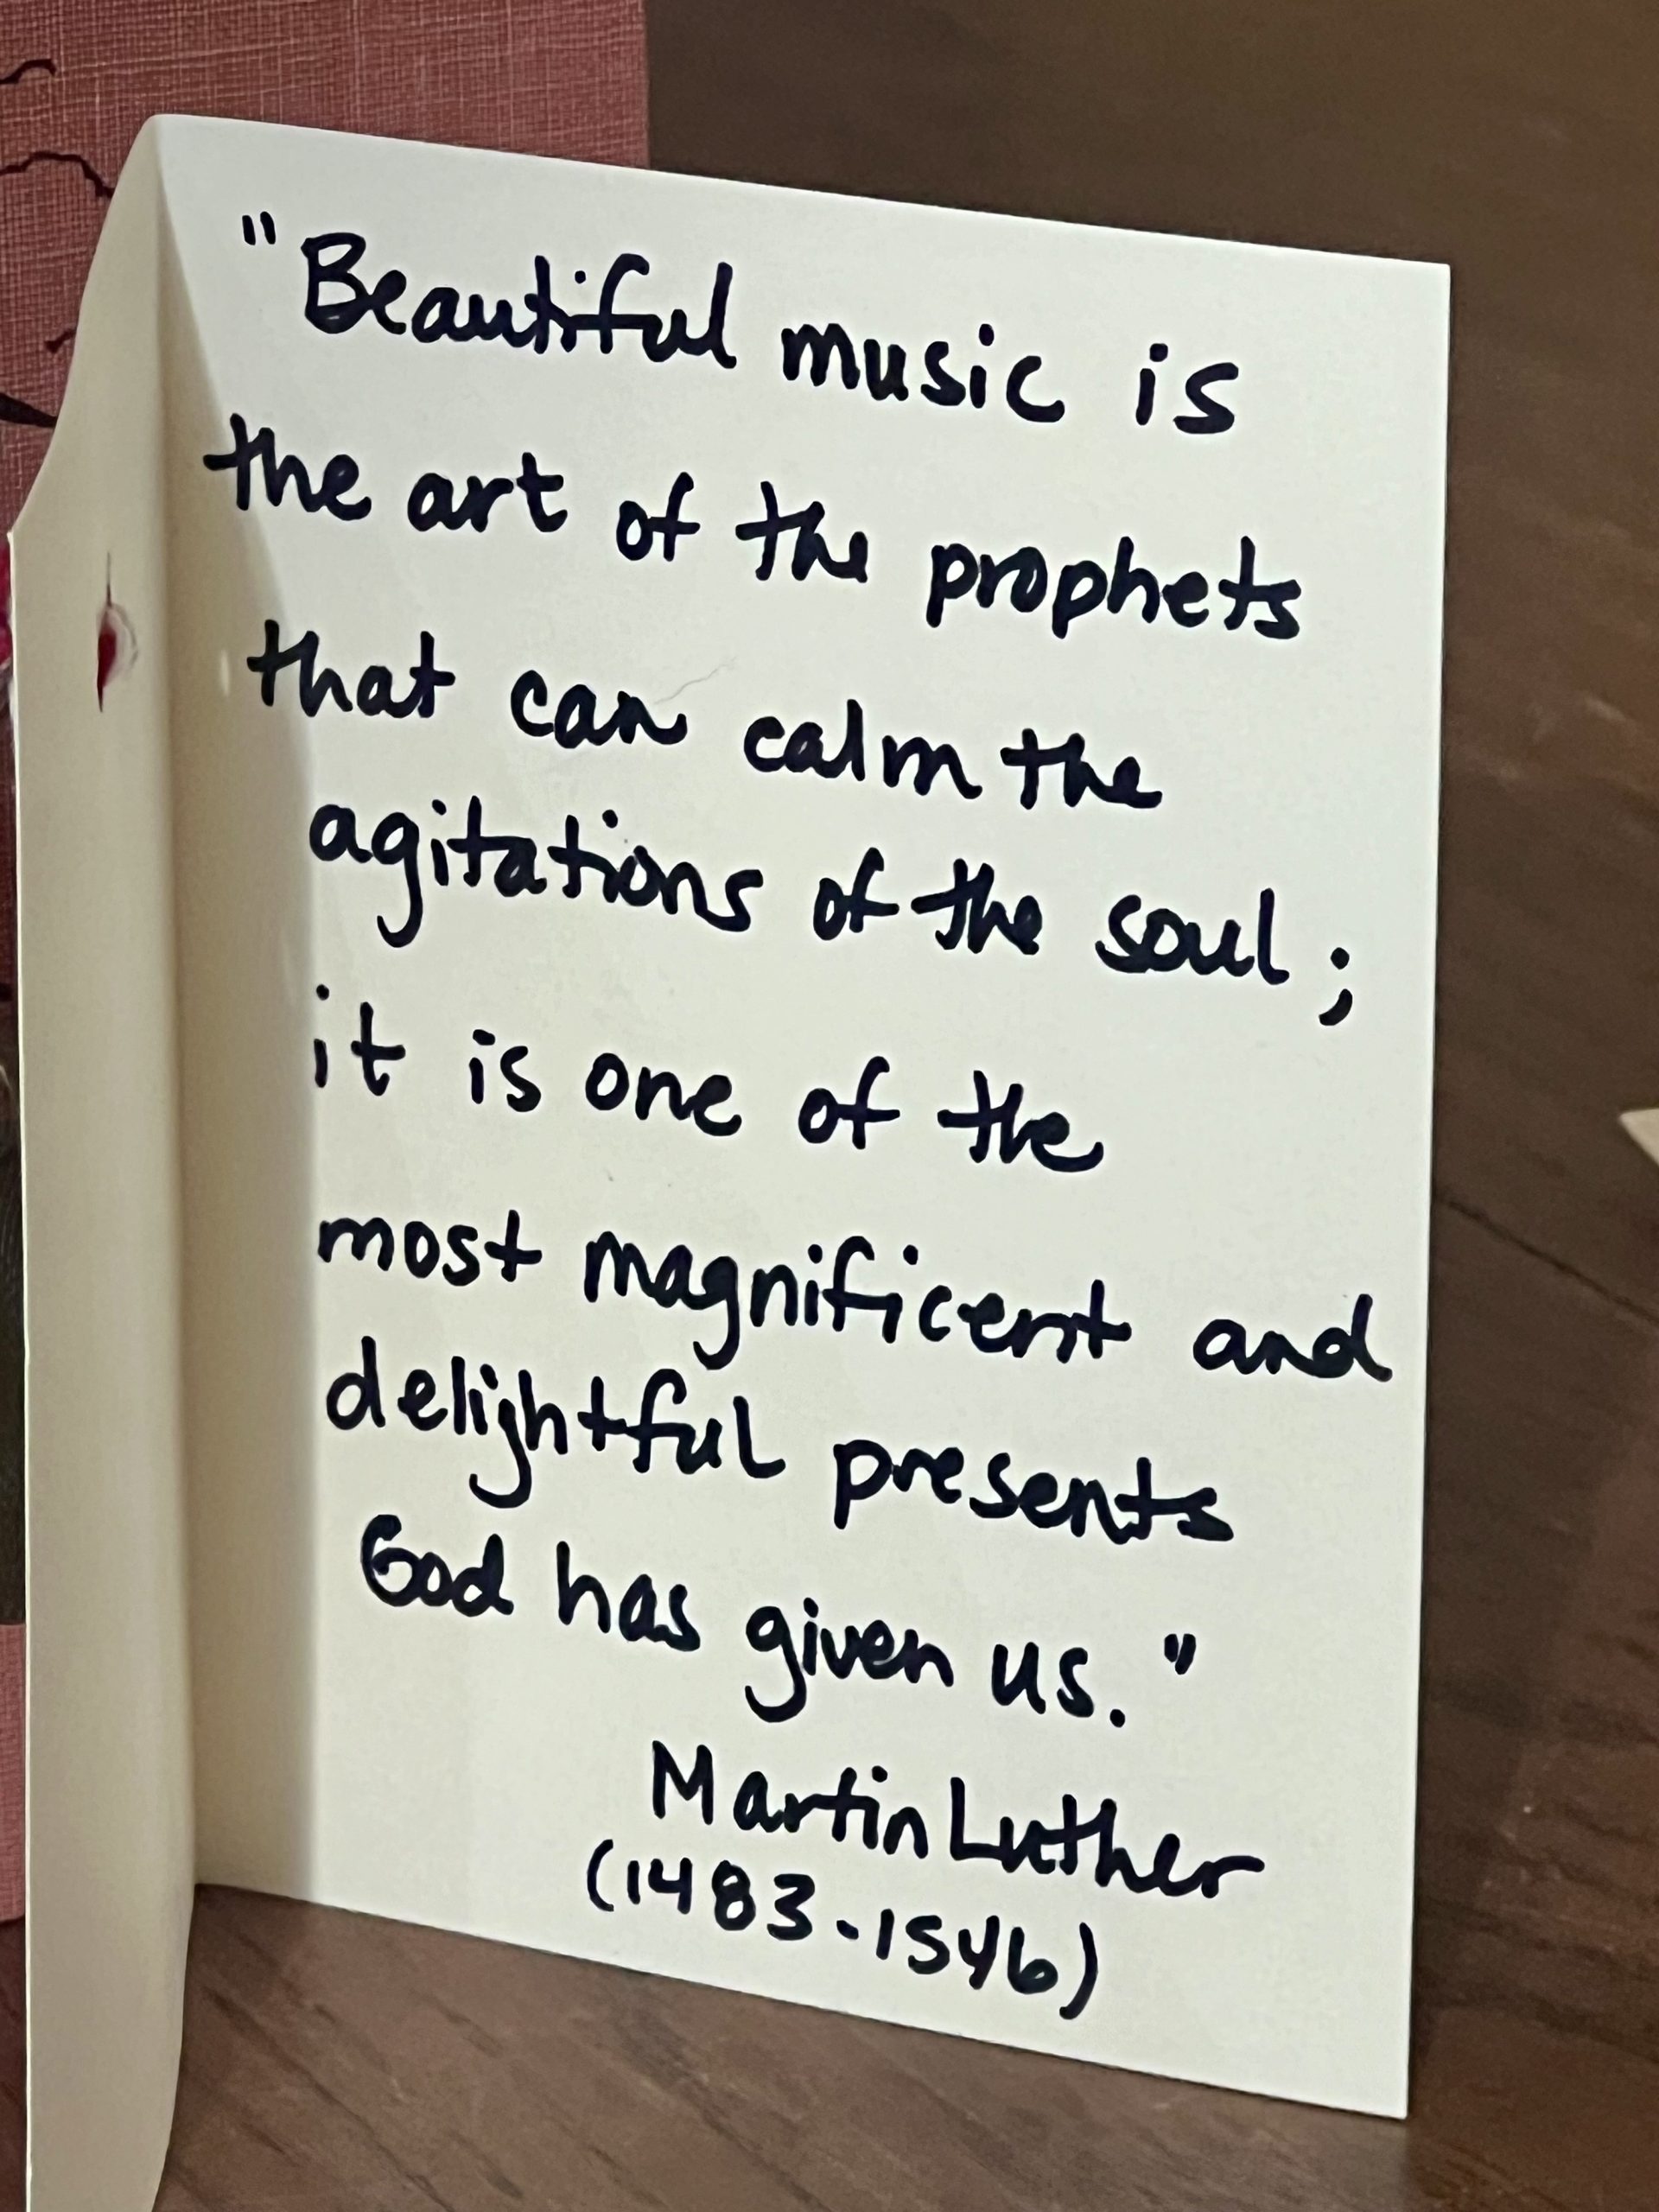 "Beautiful music is
the art of the prophets
that can calm the
agitations of the soul;
it is one of the
most magnificent and
delightful presents
God has given us."
Martin Luther
(1483-1546)